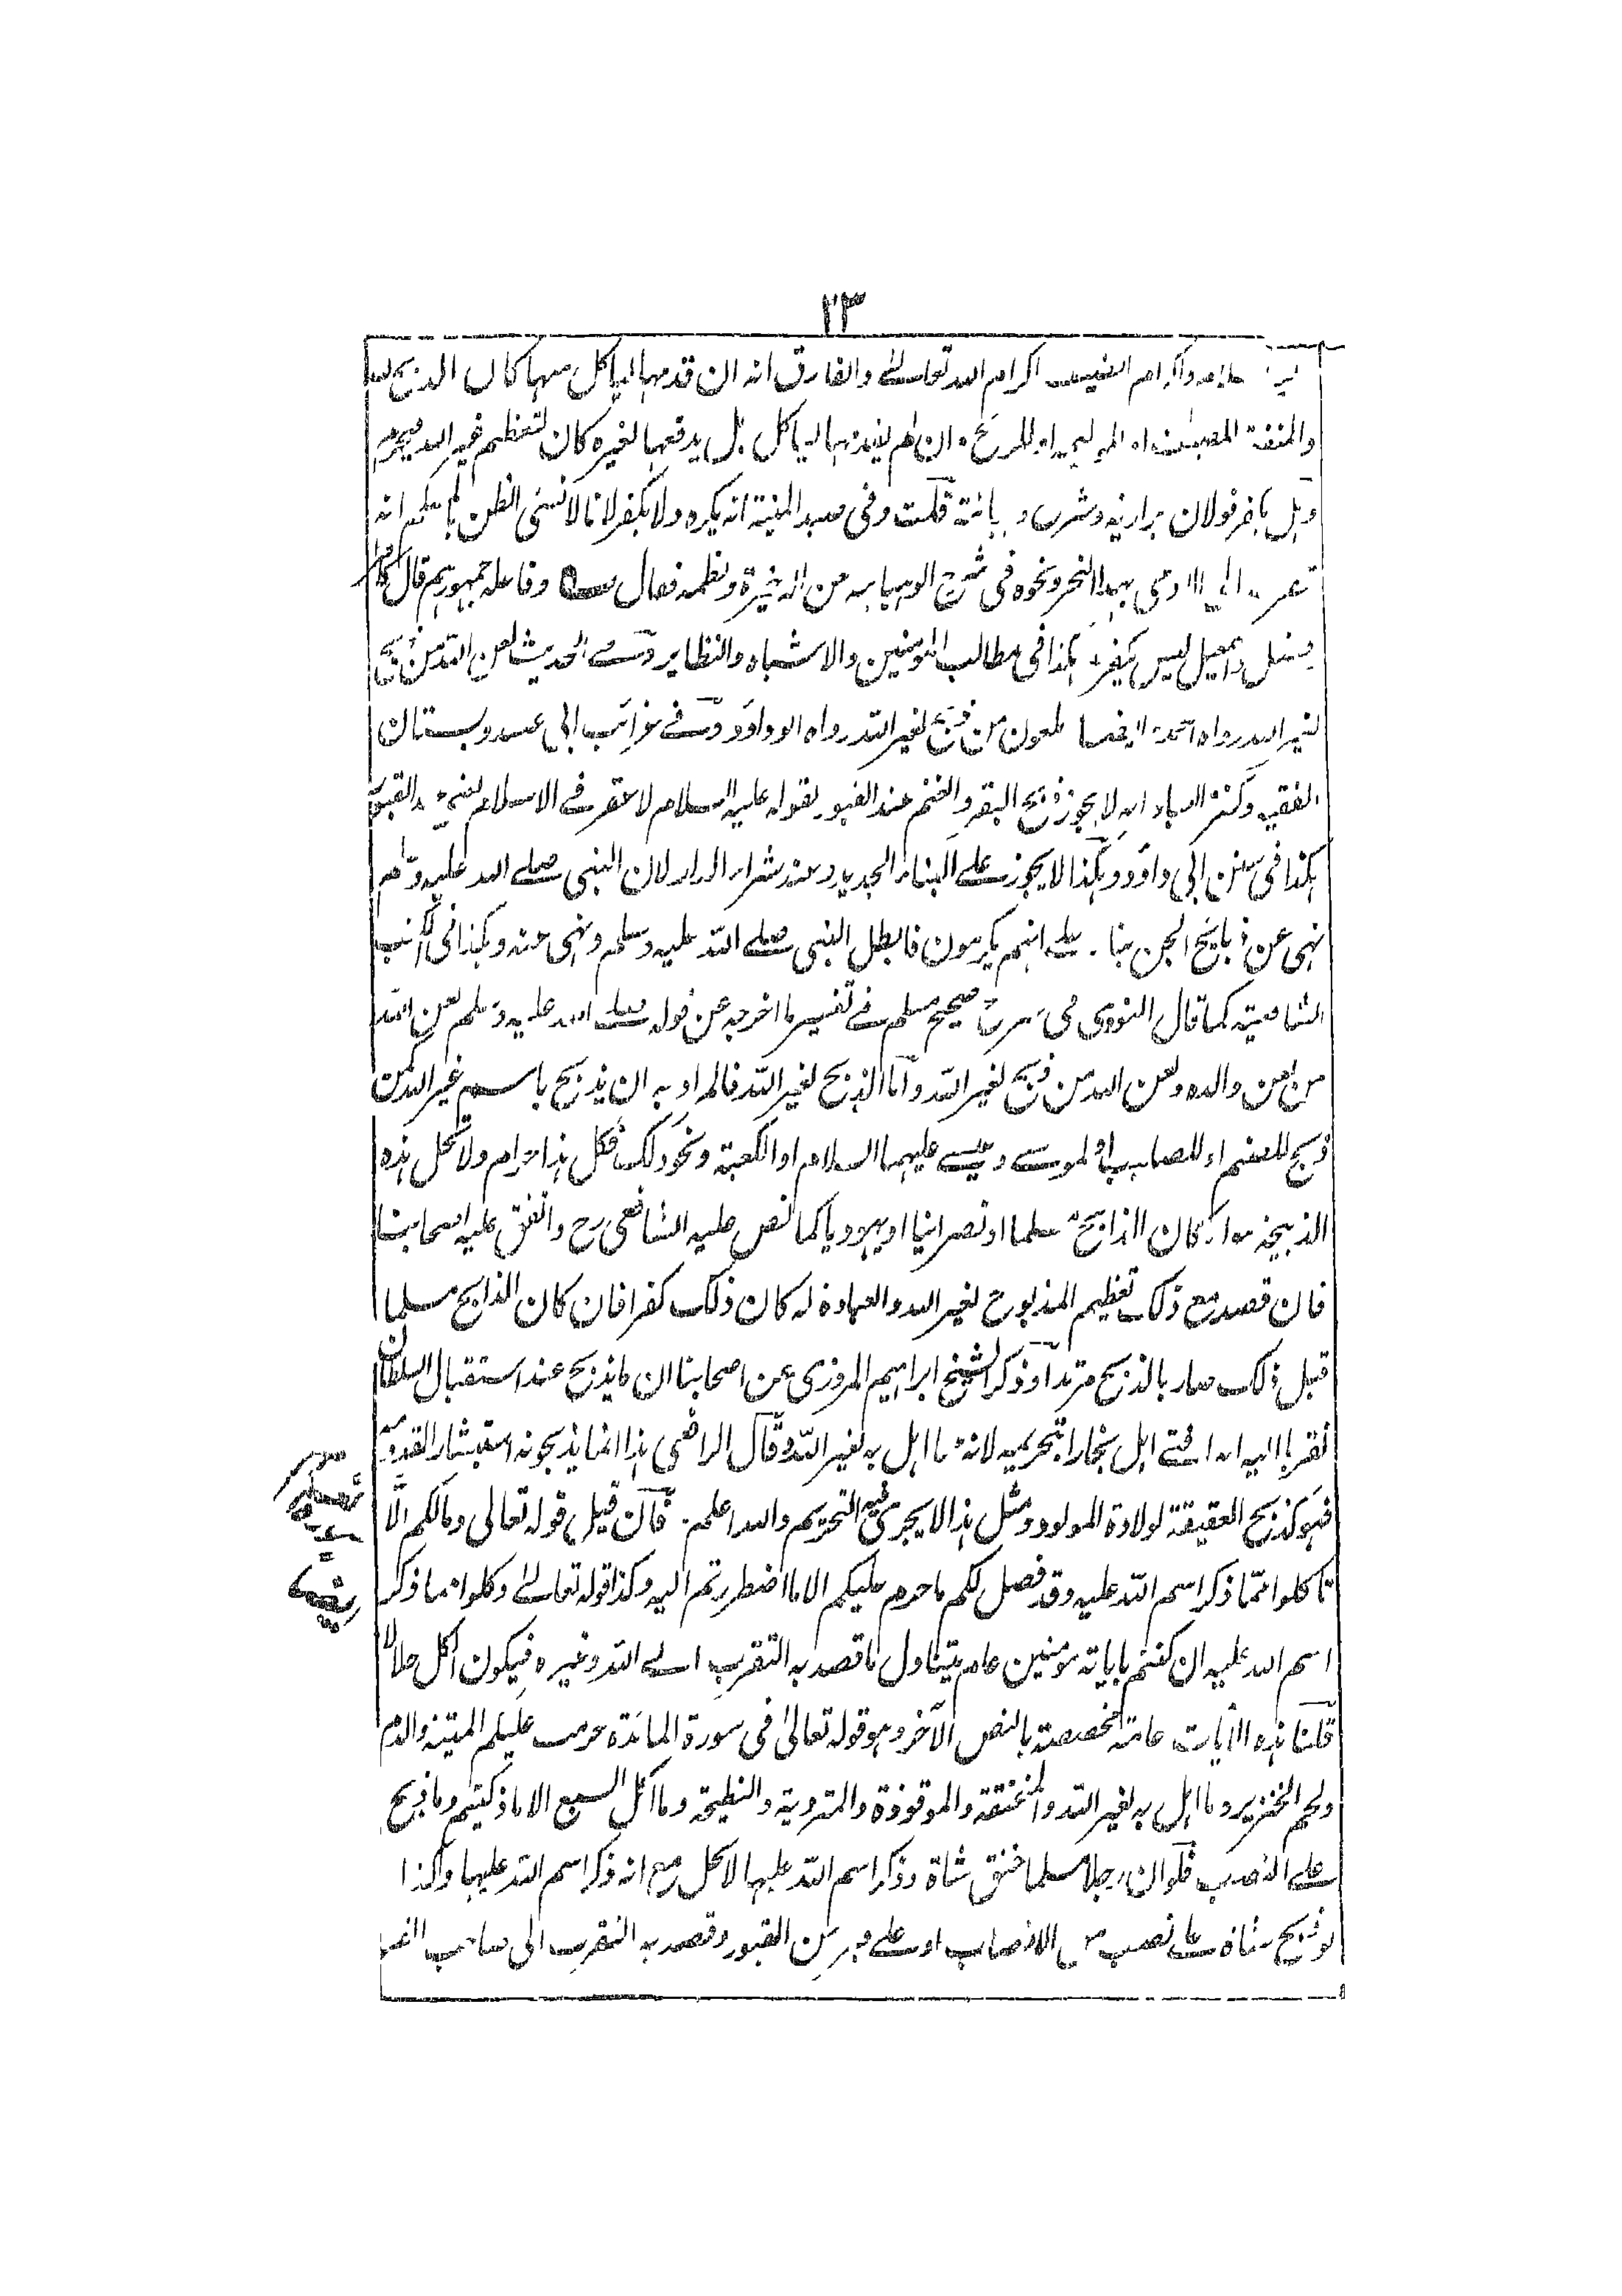 ٢٣
واكرام الضيف اكرام الله تعالى والفارق انه ان قدمها لياكل منها كان الذبح لله
والمنفعة للضيف او للوليمة او للربح وان لم يقدمها لياكل بل يدفعها لغيره كان لتعظيم غير الله فيحرم
وهل يكفر قولان بزازيه وشرح وهبانية قلت وفى صيد المنية انه يكره ولا يكفر لانا لا نسئ الظن بالمسلم انه
يتقرب الى الادمى بهذا النحر ونحوه فى شرح الوهبانيه عن الذخيرة ونظمه فقال ؎ وفاعله جمهورهم قال كافر
وفضلى واسمعيل ليس يكفر هكذا فى مطالب المؤمنين والاشباه والنظاير وفى الحديث لعن الله من ذبح
لغير الله رواه احمد ايضا ملعون من ذبح لغير الله رواه ابو داؤد وفى غرائب ابى عبيد وبستان
الفقيه وكنز العباد انه لا يجوز ذبح البقر والغنم عند القبور لقوله عليه السلام لا عقر فى الاسلام يعنى عند القبور
هكذا فى سنن ابى داؤد وهكذا لا يجوز على البناء الجديد وعند شراء الدار لان النبى صلى الله عليه وسلم
نهى عن ذبائح الجن بناء على انهم يكرمون فابطل النبى صلى الله عليه وسلم ونهى عنه وهكذا فى كتب
الشافعية كما قال النووى فى شرح صحيح مسلم فى تفسير ما اخرجه عن قوله صلى الله عليه وسلم لعن الله
من لعن والده ولعن الله من ذبح لغير الله واما الذبح لغير الله فالمراد به ان يذبح باسم غير الله كمن
ذبح للصنم او للصليب او لموسى وعيسى عليهما السلام او الكعبة ونحو ذلك فكل هذا حرام ولا تحل هذه
الذبيحة سواء كان الذابح مسلما او نصرانيا او يهوديا كما نص عليه الشافعى رح واتفق عليه اصحابنا
فان قصد مع ذلك تعظيم المذبوح لغير الله والعبادة له كان ذلك كفرا فان كان الذابح مسلما
قبل ذلك صار بالذبح مرتدا وذكر الشيخ ابراهيم المروزى من اصحابنا ان ما يذبح عند استقبال السلطان
تقربا اليه انه افتى اهل بخارا بتحريمه لانه مما اهل به لغير الله وقال الرافعى هذا انما يذبحونه استبشارا لقدومه
فهو كذبح العقيقة لولادة المولود ومثل هذا لا يجرى فيه التحريم والله اعلم. فان قيل قوله تعالى وما لكم الا
تاكلوا مما ذكر اسم الله عليه وقد فصل لكم ما حرم عليكم الا ما اضطررتم اليه وكذا قوله تعالى وكلوا مما ذكر
اسم الله عليه ان كنتم باياته مؤمنين عام يتناول ما قصد به التقرب الى الله وغيره فيكون اكل حلالا
قلنا هذه الآيات عامة مخصصة بالنص الآخر وهو قوله تعالى فى سورة المائدة حرمت عليكم الميتة والدم
ولحم الخنزير وما اهل به لغير الله والمنخنقة والموقوذة والمتردية والنطيحة وما اكل السبع الا ما ذكيتم وما ذبح
على النصب فلو ان رجلا مسلما خنق شاة وذكر اسم الله عليها لا تحل مع انه ذكر اسم الله عليها وكذا
لو ذبح شاة على نصب من الانصاب او على قبر من القبور وقصد به التقرب الى صاحب القبر